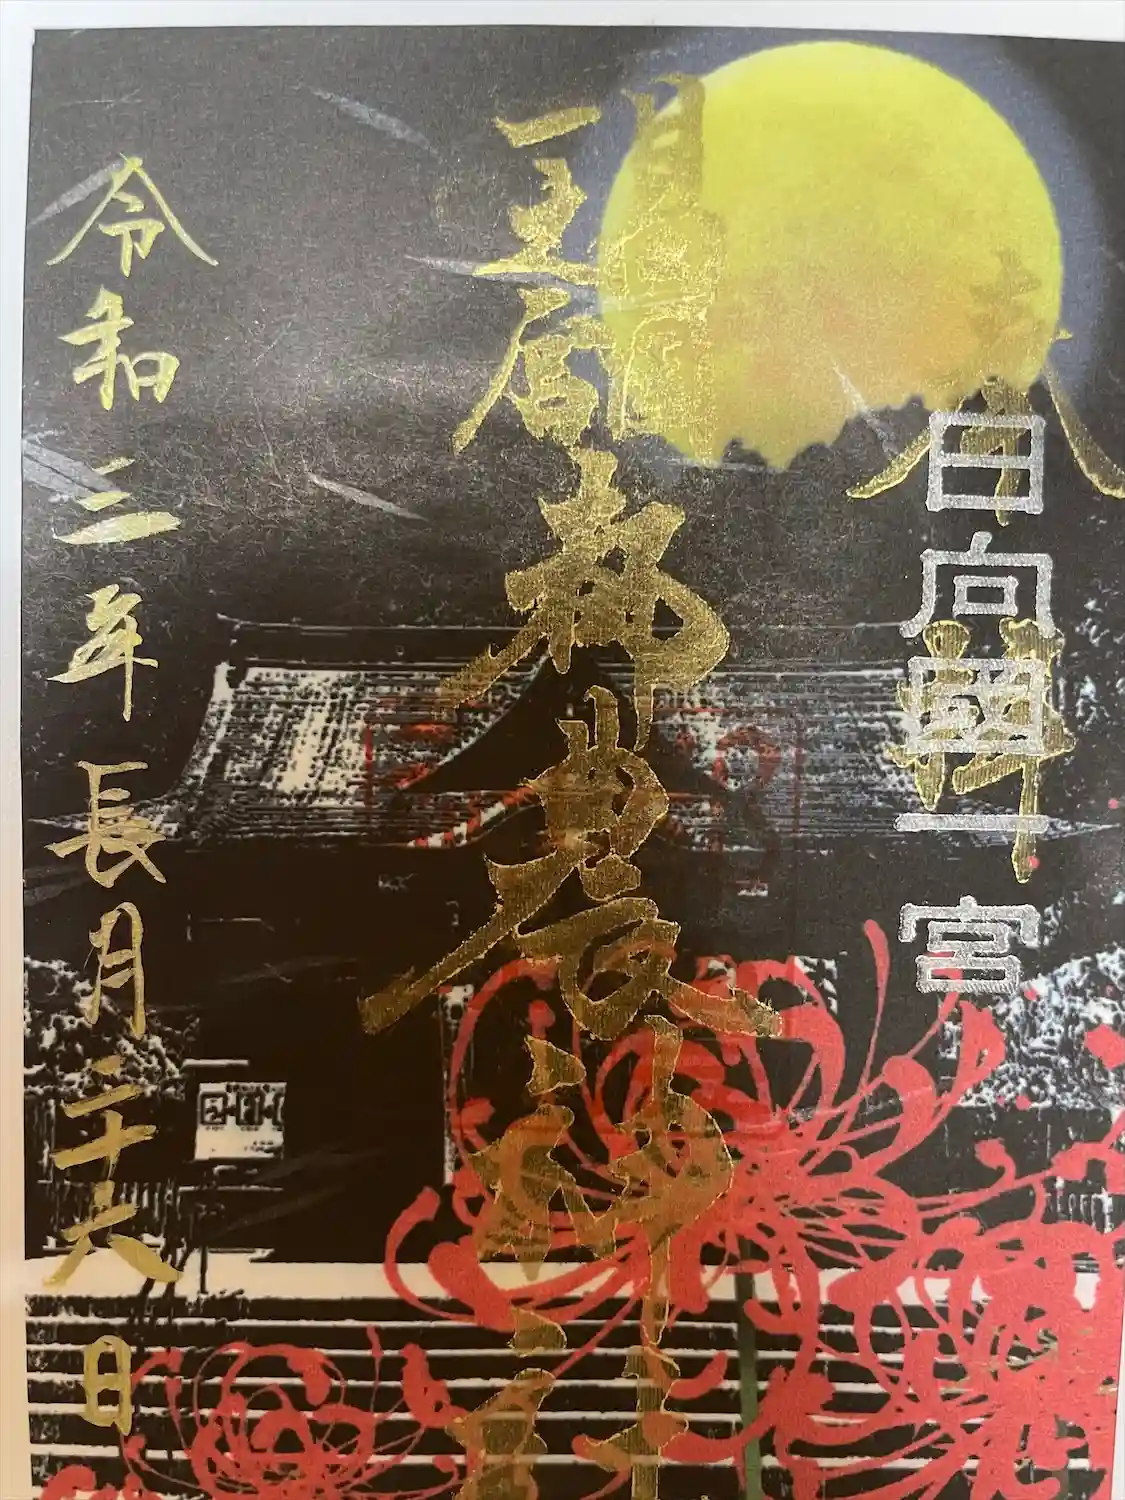 奉拝
日向國一宮
都農神社
令和三年長月二十六日